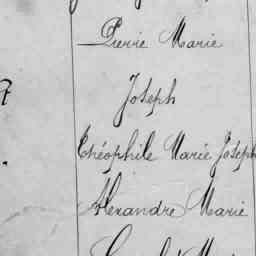 Pierre Marie
Joseph
Théophile Marie Joseph
Alexandre Marie